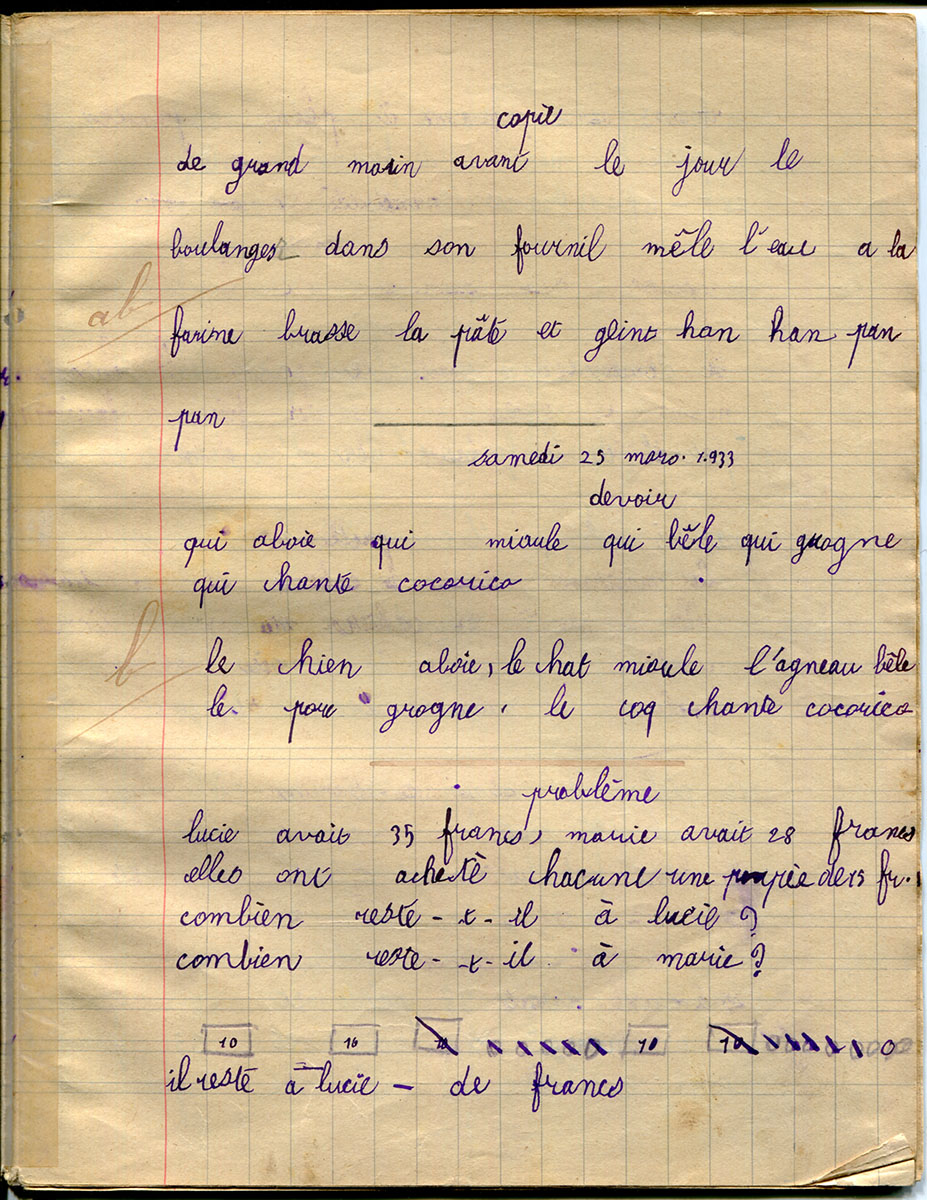 copie
de grand matin avant le jour le
boulanger dans son fournil mêle l'eau a la
ab
farine brasse la pâte et geint han han pan
pan
samedi 25 mars. 1.933
devoir
qui aboie qui miaule qui bêle qui grogne
qui chante cocorico
b
le chien aboie, le chat miaule l'agneau bêle
le porc grogne. le coq chante cocorico
problème
lucie avait 35 francs, marie avait 28 francs
elles ont acheté chacune une poupée de 15 fr.
combien reste-t-il à lucie?
combien reste-t-il à marie?
10 10 10 10 10
il reste à lucie — de francs